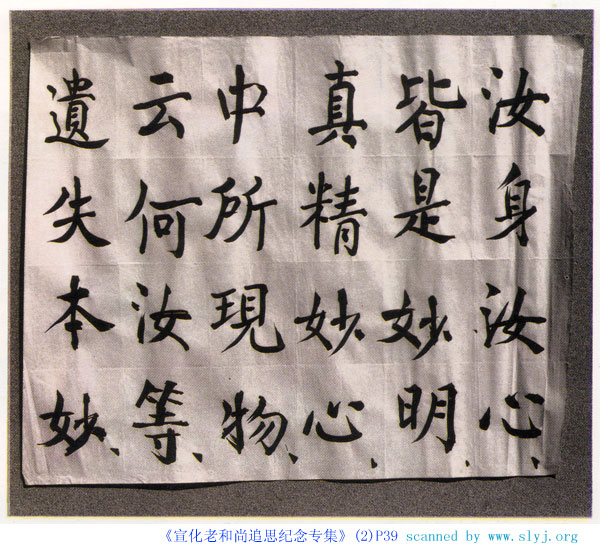 汝身汝心、
皆是妙明、
真精妙心、
中所現物、
云何汝等、
遺失本妙、
《宣化老和尚追思纪念专集》(2)P39 scanned by www.slyj.org